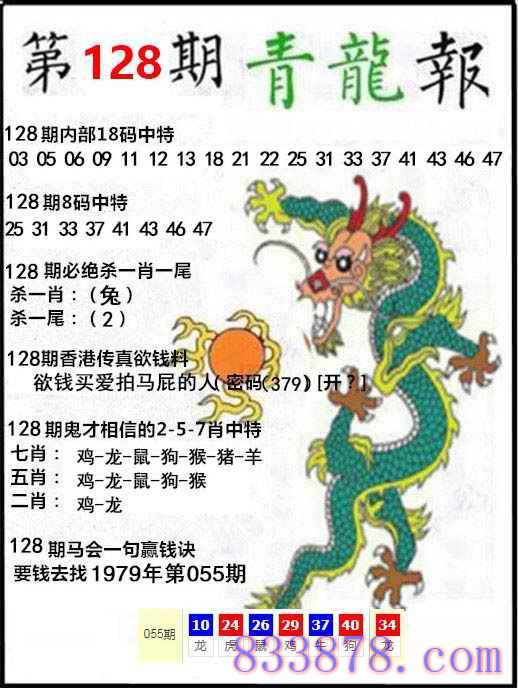 第128期青龍報
128期内部18码中特
03 05 06 09 11 12 13 18 21 22 25 31 33 37 41 43 46 47
128期8码中特
25 31 33 37 41 43 46 47
128期必绝杀一肖一尾
杀一肖:(兔)
杀一尾:(2)
128期香港传真欲钱料
欲钱买爱拍马屁的人(密码(379)[开?]
128期鬼才相信的2-5-7肖中特
七肖: 鸡-龙-鼠-狗-猴-猪-羊
五肖: 鸡-龙-鼠-狗-猴
二肖: 鸡-龙
128期马会一句赢钱诀
要钱去找1979年第055期
055期 10 24 26 29 37 40 34
龙 虎 鼠 鸡 牛 狗 龙
833878.com